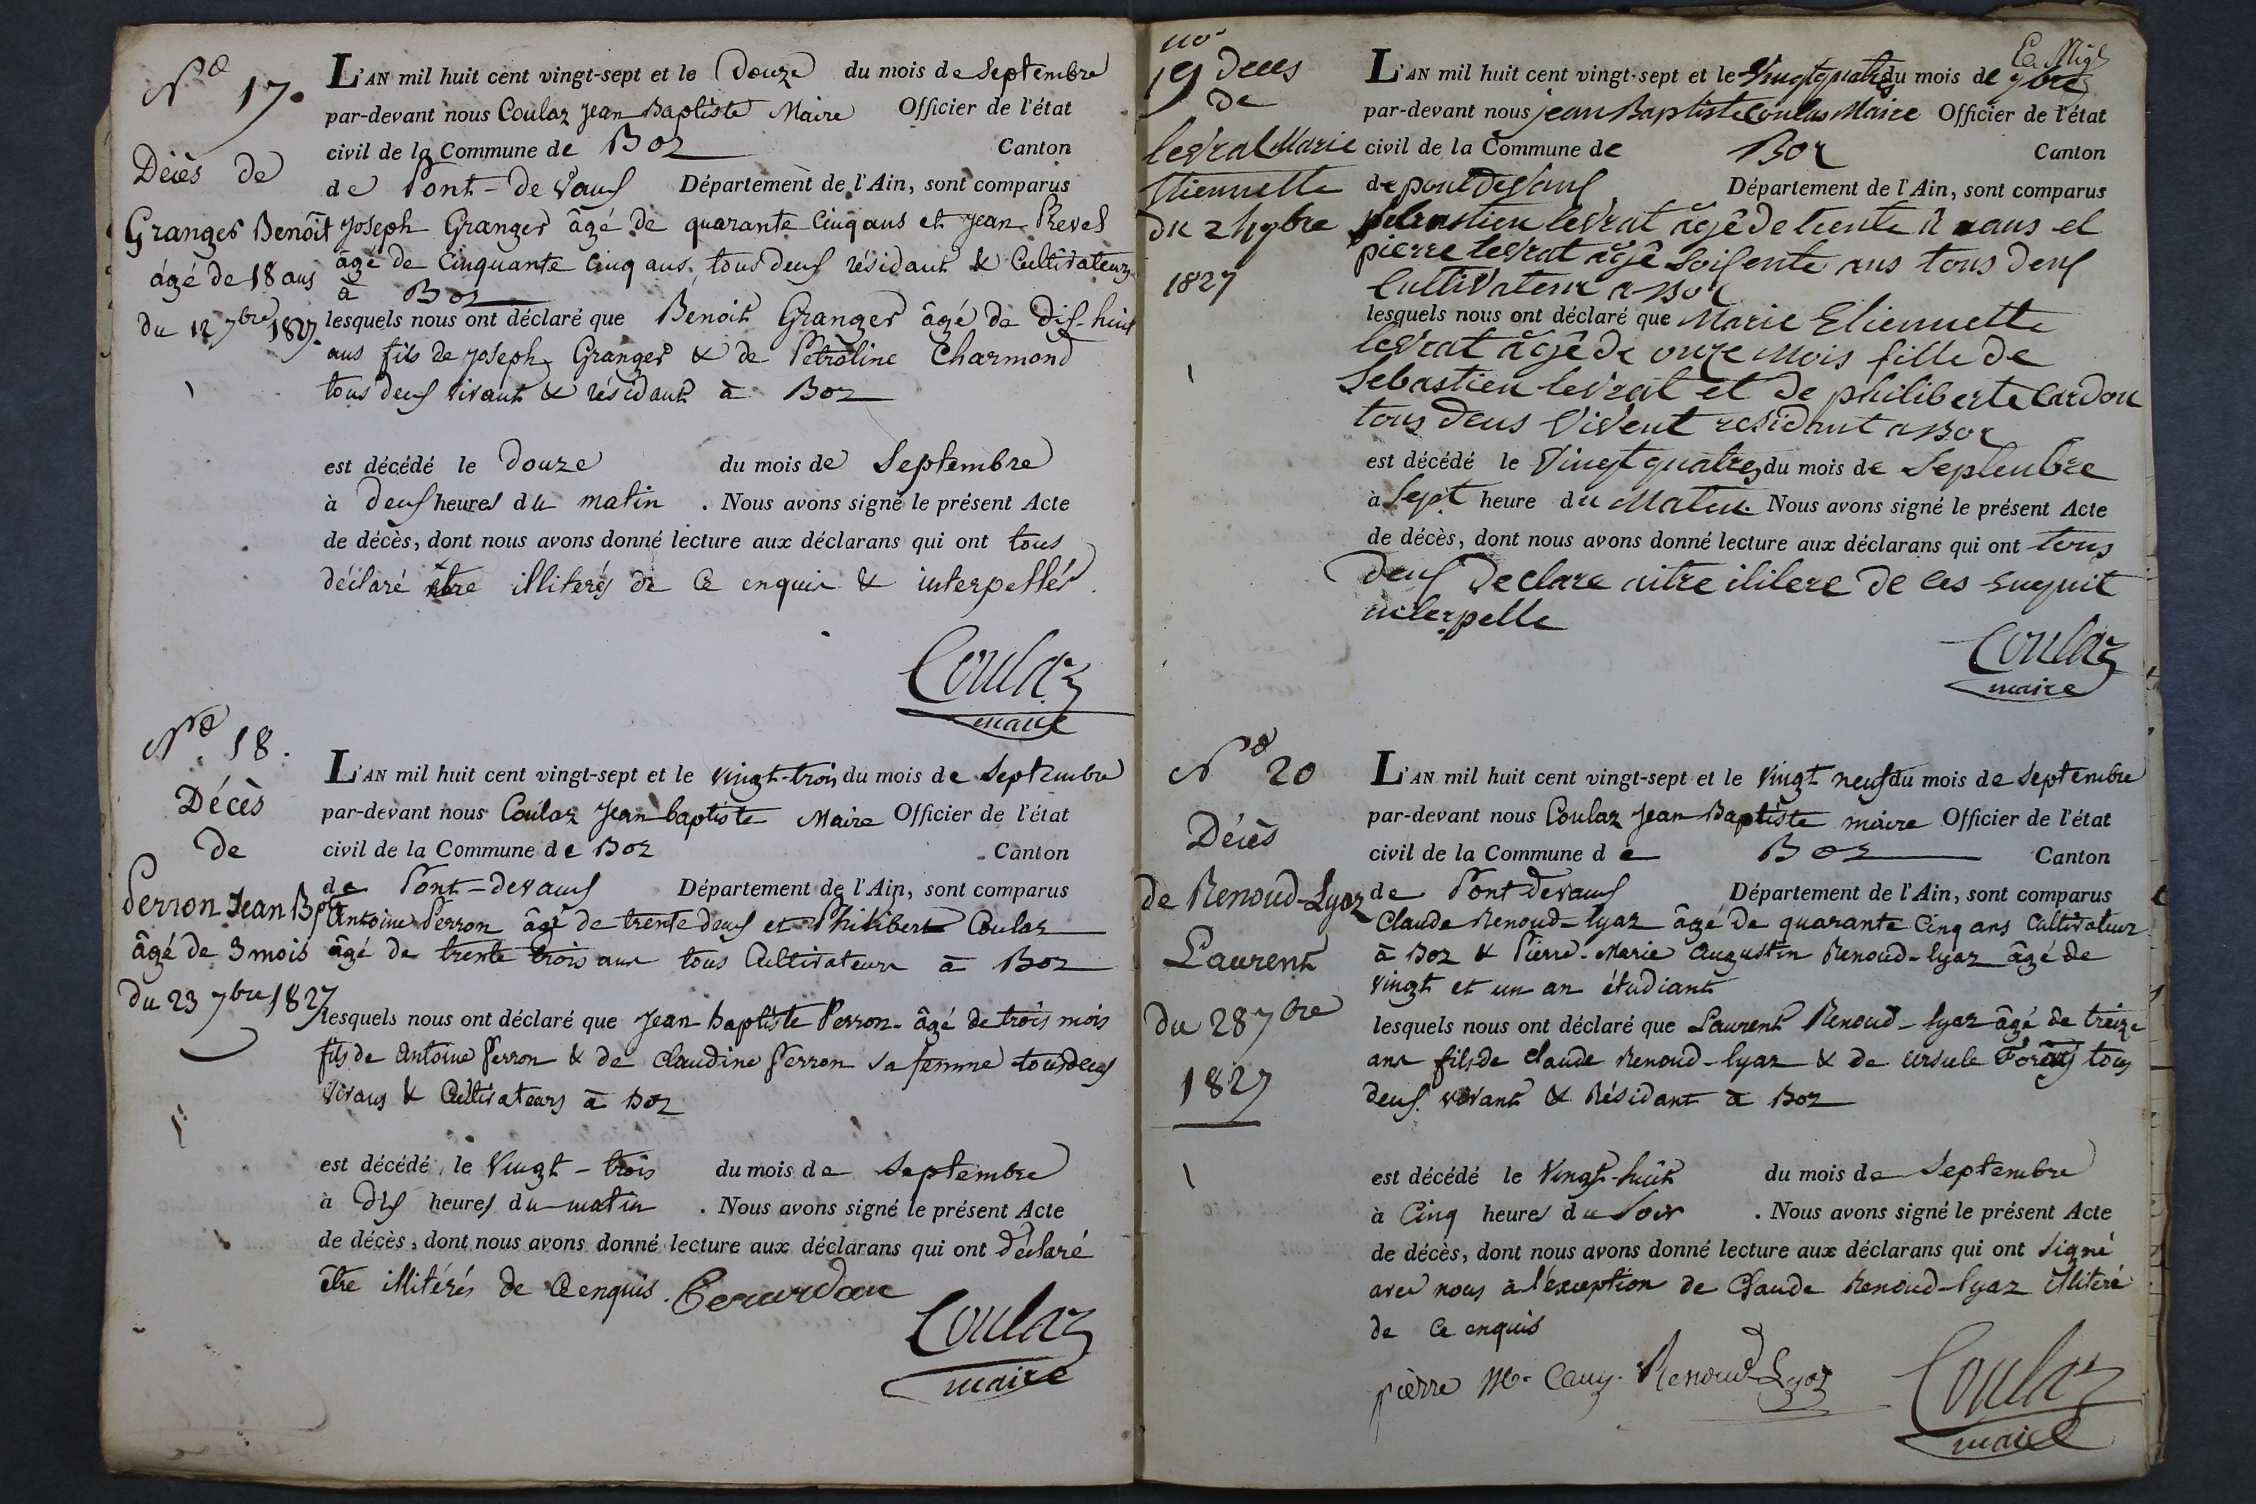 N° 17.
Décès de
Granger Benoît
âgé de 18 ans
du 12 7bre 1827.
L'AN mil huit cent vingt-sept et le Douze du mois de Septembre
par-devant nous Coulaz Jean Baptiste Maire Officier de l'état
civil de la Commune de Boz Canton
de Pont-de Vaux Département de l'Ain, sont comparus
Joseph Granger âgé de quarante Cinq ans et Jean Revel
âgé de Cinquante Cinq ans, tous deux résidant & Cultivateurs
à Boz
lesquels nous ont déclaré que Bénoit Granger âgé de Dix-huit
ans fils de Joseph Granger & de Pétroline Charmond
tous deux vivant & résidant à Boz
est décédé le Douze du mois de Septembre
à deux heures du matin . Nous avons signé le présent Acte
de décès, dont nous avons donné lecture aux déclarans qui ont tous
déclaré être illiterés de Ce enquis & interpellés.
Coulaz
maire
N° 18.
Décès
de
Perron Jean Bpte
âgé de 3 mois
du 23 7bre 1827
L'AN mil huit cent vingt-sept et le vingt-trois du mois de Septembre
par-devant nous Coulaz Jean baptiste Maire Officier de l'état
civil de la Commune de Boz Canton
de Pont-devaux Département de l'Ain, sont comparus
Antoine Perron âgé de trente deux et Philibert Coulaz
âgé de trente trois ans tous Cultivateurs à Boz
lesquels nous ont déclaré que Jean baptiste Perron âgé de trois mois
fils de Antoine Perron & de Claudine Perron sa femme tous deux
vivans & Cultivateurs à Boz
est décédé le Vingt-trois du mois de Septembre
à Dix heures du matin . Nous avons signé le présent Acte
de décès, dont nous avons donné lecture aux déclarans qui ont déclaré
être illitérés de Ce enquis.
Coulaz
maire
no
19 deces
de
levrat Marie
Etiennette
du 24 7bre
1827
L'AN mil huit cent vingt-sept et le Vingt quatre du mois de 7bre
par-devant nous jean Baptiste Coulas Maire Officier de l'état
civil de la Commune de Boz Canton
de pont de vaux Département de l'Ain, sont comparus
sebastien levrat âgê de trente ans et
pierre levrat agê soisente ans tous deux
Cultivateur a Boz
lesquels nous ont déclaré que Marie Etiennette
levrat âgê de onze Mois fille de
Sebastien levrat et de philiberte Cardon
tous deus vivent residant a Boz
est décédé le Vingt quatre du mois de Septenbre
à Sept heure du Matin. Nous avons signé le présent Acte
de décès, dont nous avons donné lecture aux déclarans qui ont tous
deux declare aitre ilitere de ces enquit
interpelle
Coulaz
maire
N° 20
Décès
de Renoud-Lyaz
Laurent
du 28 7bre
1827
L'AN mil huit cent vingt-sept et le Vingt neuf du mois de Septembre
par-devant nous Coulaz Jean Baptiste maire Officier de l'état
civil de la Commune de Boz Canton
de Pont devaux Département de l'Ain, sont comparus
Claude Renoud-lyaz âgé de quarante Cinq ans Cultivateur
à Boz & Pierre-Marie Augustin Renoud-lyaz âgé de
vingt et un an étudiant
lesquels nous ont déclaré que Laurent Renoud-lyaz âgé de treize
ans fils de Claude Renoud-lyaz & de Ursule tous
deux vivant & Résidant à Boz
est décédé le Vingt-huit du mois de Septembre
à Cinq heures du Soir . Nous avons signé le présent Acte
de décès, dont nous avons donné lecture aux déclarans qui ont signé
avec nous à l'exception de Claude Renoud-lyaz illiteré
de Ce enquis
pierre Me. Aug. Renoud-Lyaz
Coulaz
maire